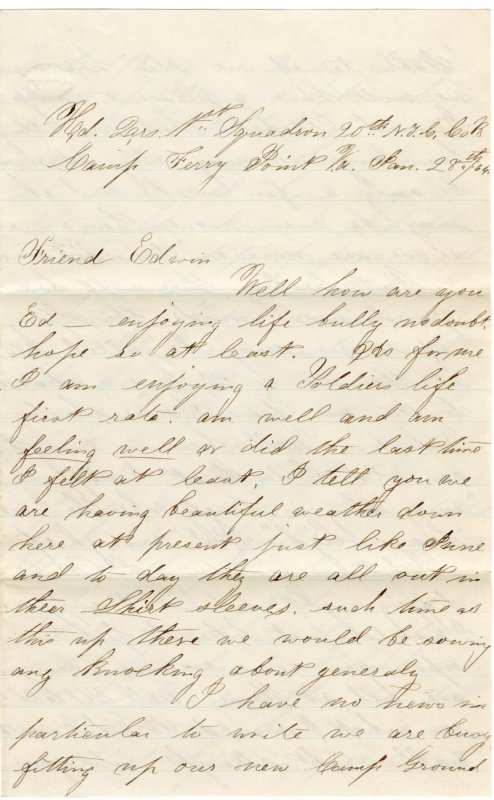 Hd. Qrs. 1st Squadron 20th N.Y.C. Co K
Camp Ferry Point Va. Jan. 28th/64.
Friend Edwin
Well how are you
Ed — enjoying life bully no doubt.
hope so at least. As for me
I am enjoying a Soldiers life
first rate. am well and am
feeling well or did the last time
I felt at least, I tell you we
are having beautiful weather down
here at present just like June
and to day they are all out in
theer Shirt sleeves. such time as
this up there we would be sowing
ang knocking about generaly
I have no news in
particular to write we are busy
fitting up our new Camp Ground